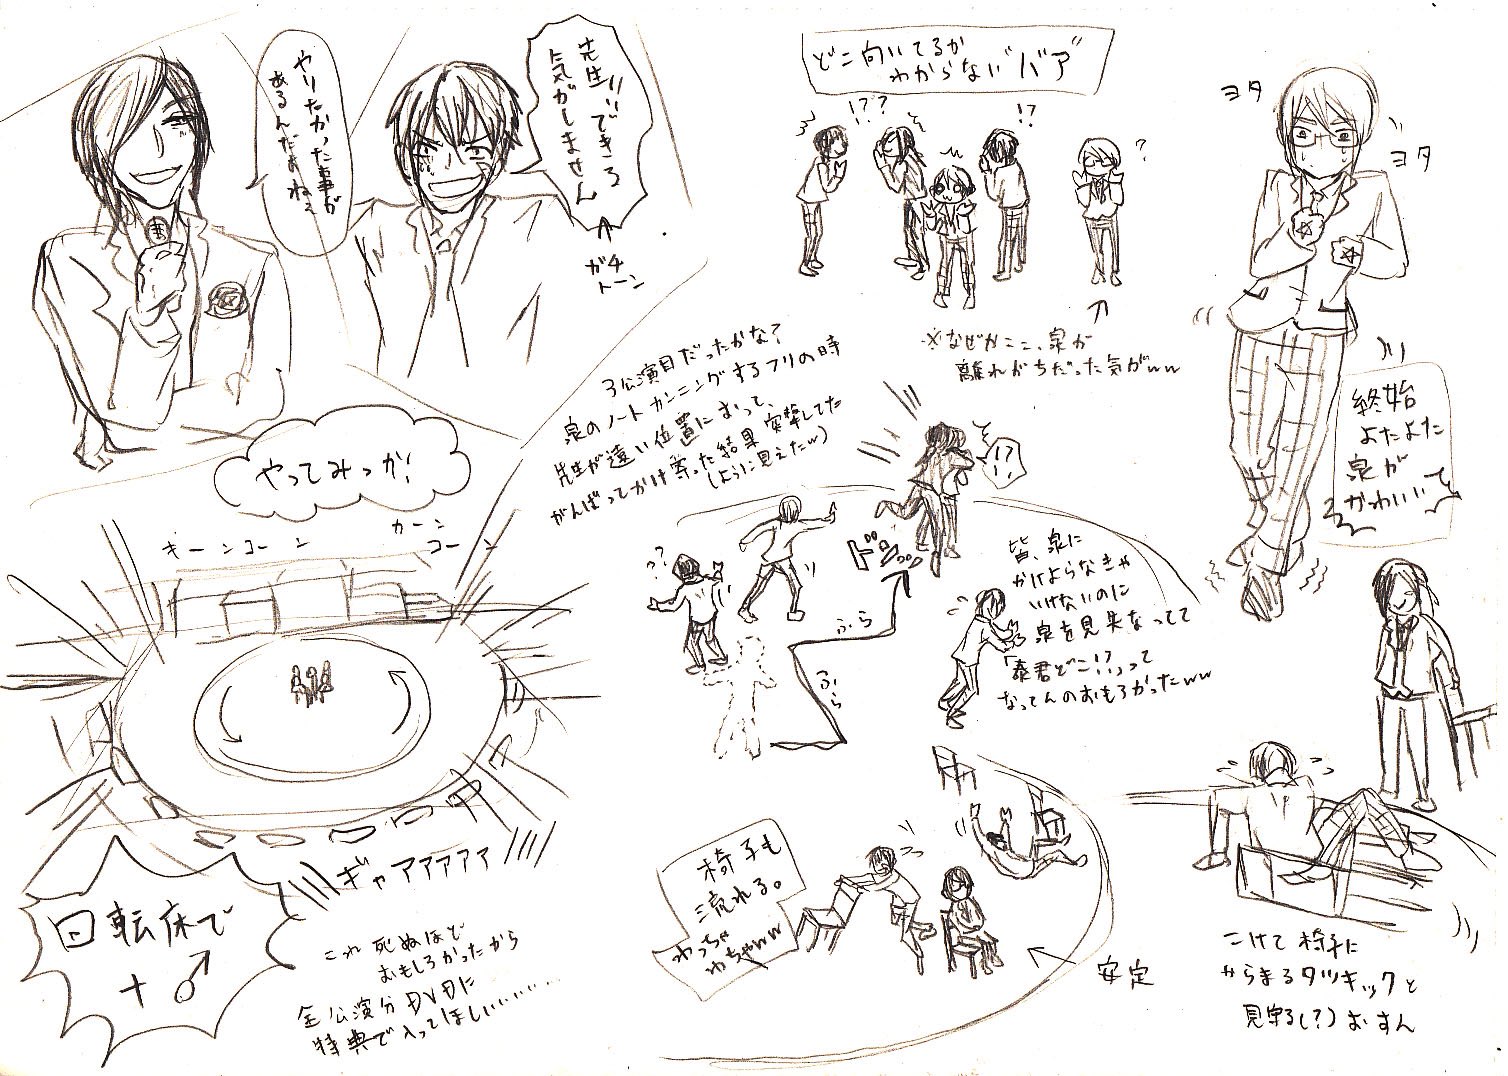 やりたかった事が
あるんだよねぇ
先生!!!できる
気がしません
ガチ
トーン
やってみっか!
キーンコーン
カーン
コーン
ギャアアアアア
回転床で
+♂
これ死ぬほど
おもしろかったから
全公演分DVDに
特典で入ってほしいぃぃぃ…
どこ向いてるか
わからない“バァ”
!??
!?
?
※なぜかここ、泉が
離れがちだった気がww
3公演目だったかな?
泉のノートカンニングするフリの時
先生が遠い位置にあって、
がんばってかけ寄った結果突撃してた
(ように見えたw)
!?!
??
ドンッ
ふら
ふら
皆、泉に
かけよらなきゃ
いけないのに
泉を見失なってて
「泰君どこ!?」って
なってんのおもろかったww
ヨタ
ヨタ
終始
よたよた
泉が
かわいい
椅子も
流れる。
わっちゃ
わちゃww
安定
こけて椅子に
からまるタツキックと
見守る(?)おすん